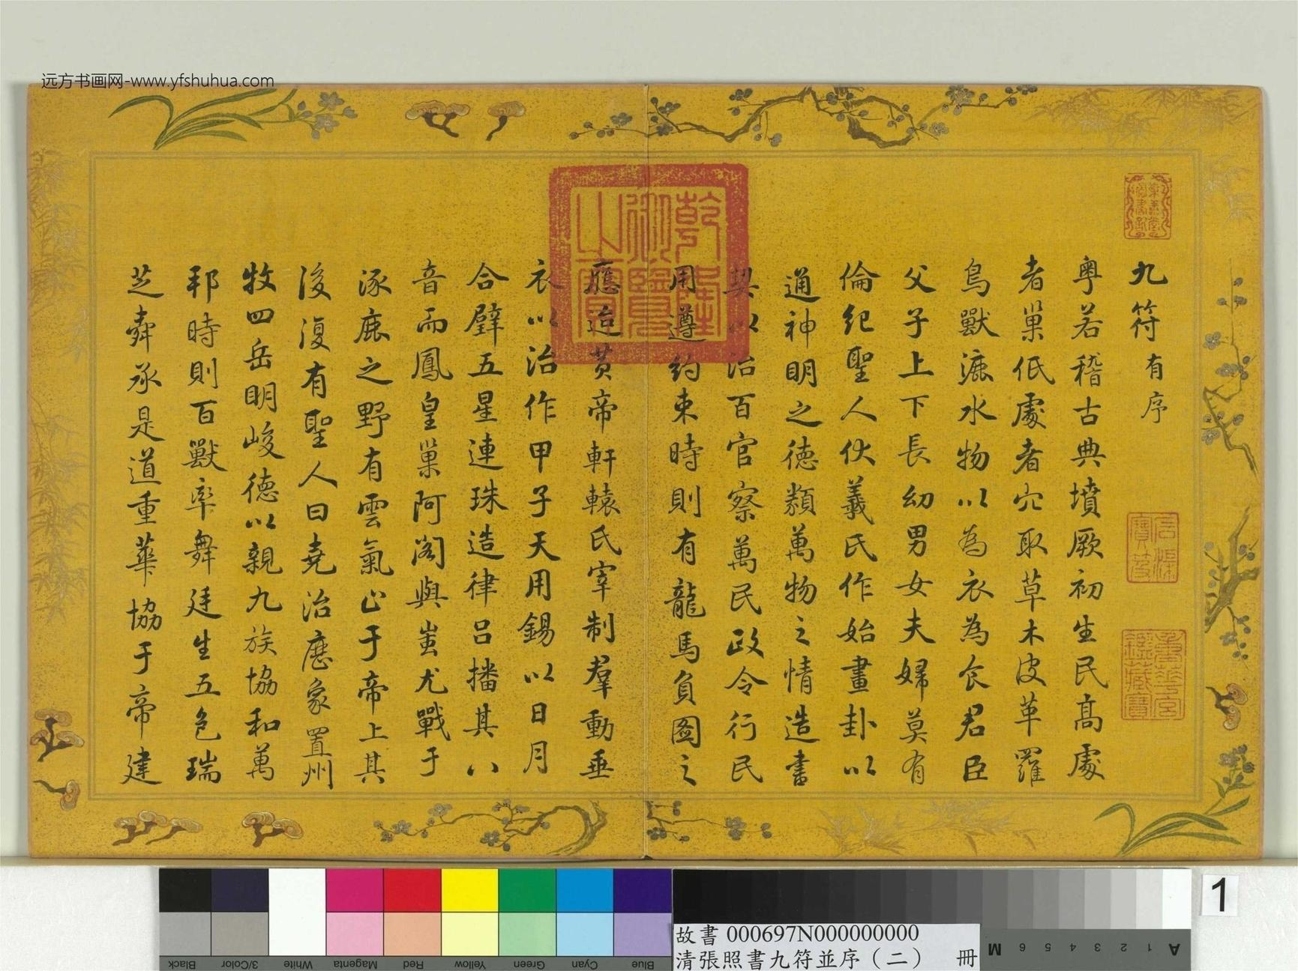 远方书画网-www.yfshuhua.com
九符有序
粵若稽古典墳厥初生民髙處
者巢低處者穴取草木皮革羅
鳥獸漉水物以為衣為食君臣
父子上下長幼男女夫婦莫有
倫紀聖人伏羲氏作始畫卦以
通神明之徳類萬物之情造書
契以治百官察萬民政令行民
用遵約束時則有龍馬負圖之
應迨黄帝軒轅氏宰制羣動垂
衣以治作甲子天用錫以日月
合璧五星連珠造律吕播其八
音而鳳皇巢阿阁與蚩尤戰于
涿鹿之野有雲氣止于帝上其
後復有聖人曰堯治厯象置州
牧四岳明峻德以親九族協和萬
邦時則百獸率舞廷生五色瑞
芝舜承是道重華協于帝建
乾隆御覽之寶
1
故書 000697N000000000
清張照書九符並序（二） 冊
Black
3/Color
White
Magenta
Red
Yellow
Green
Cyan
Blue
M
6
5
4
3
2
1
A